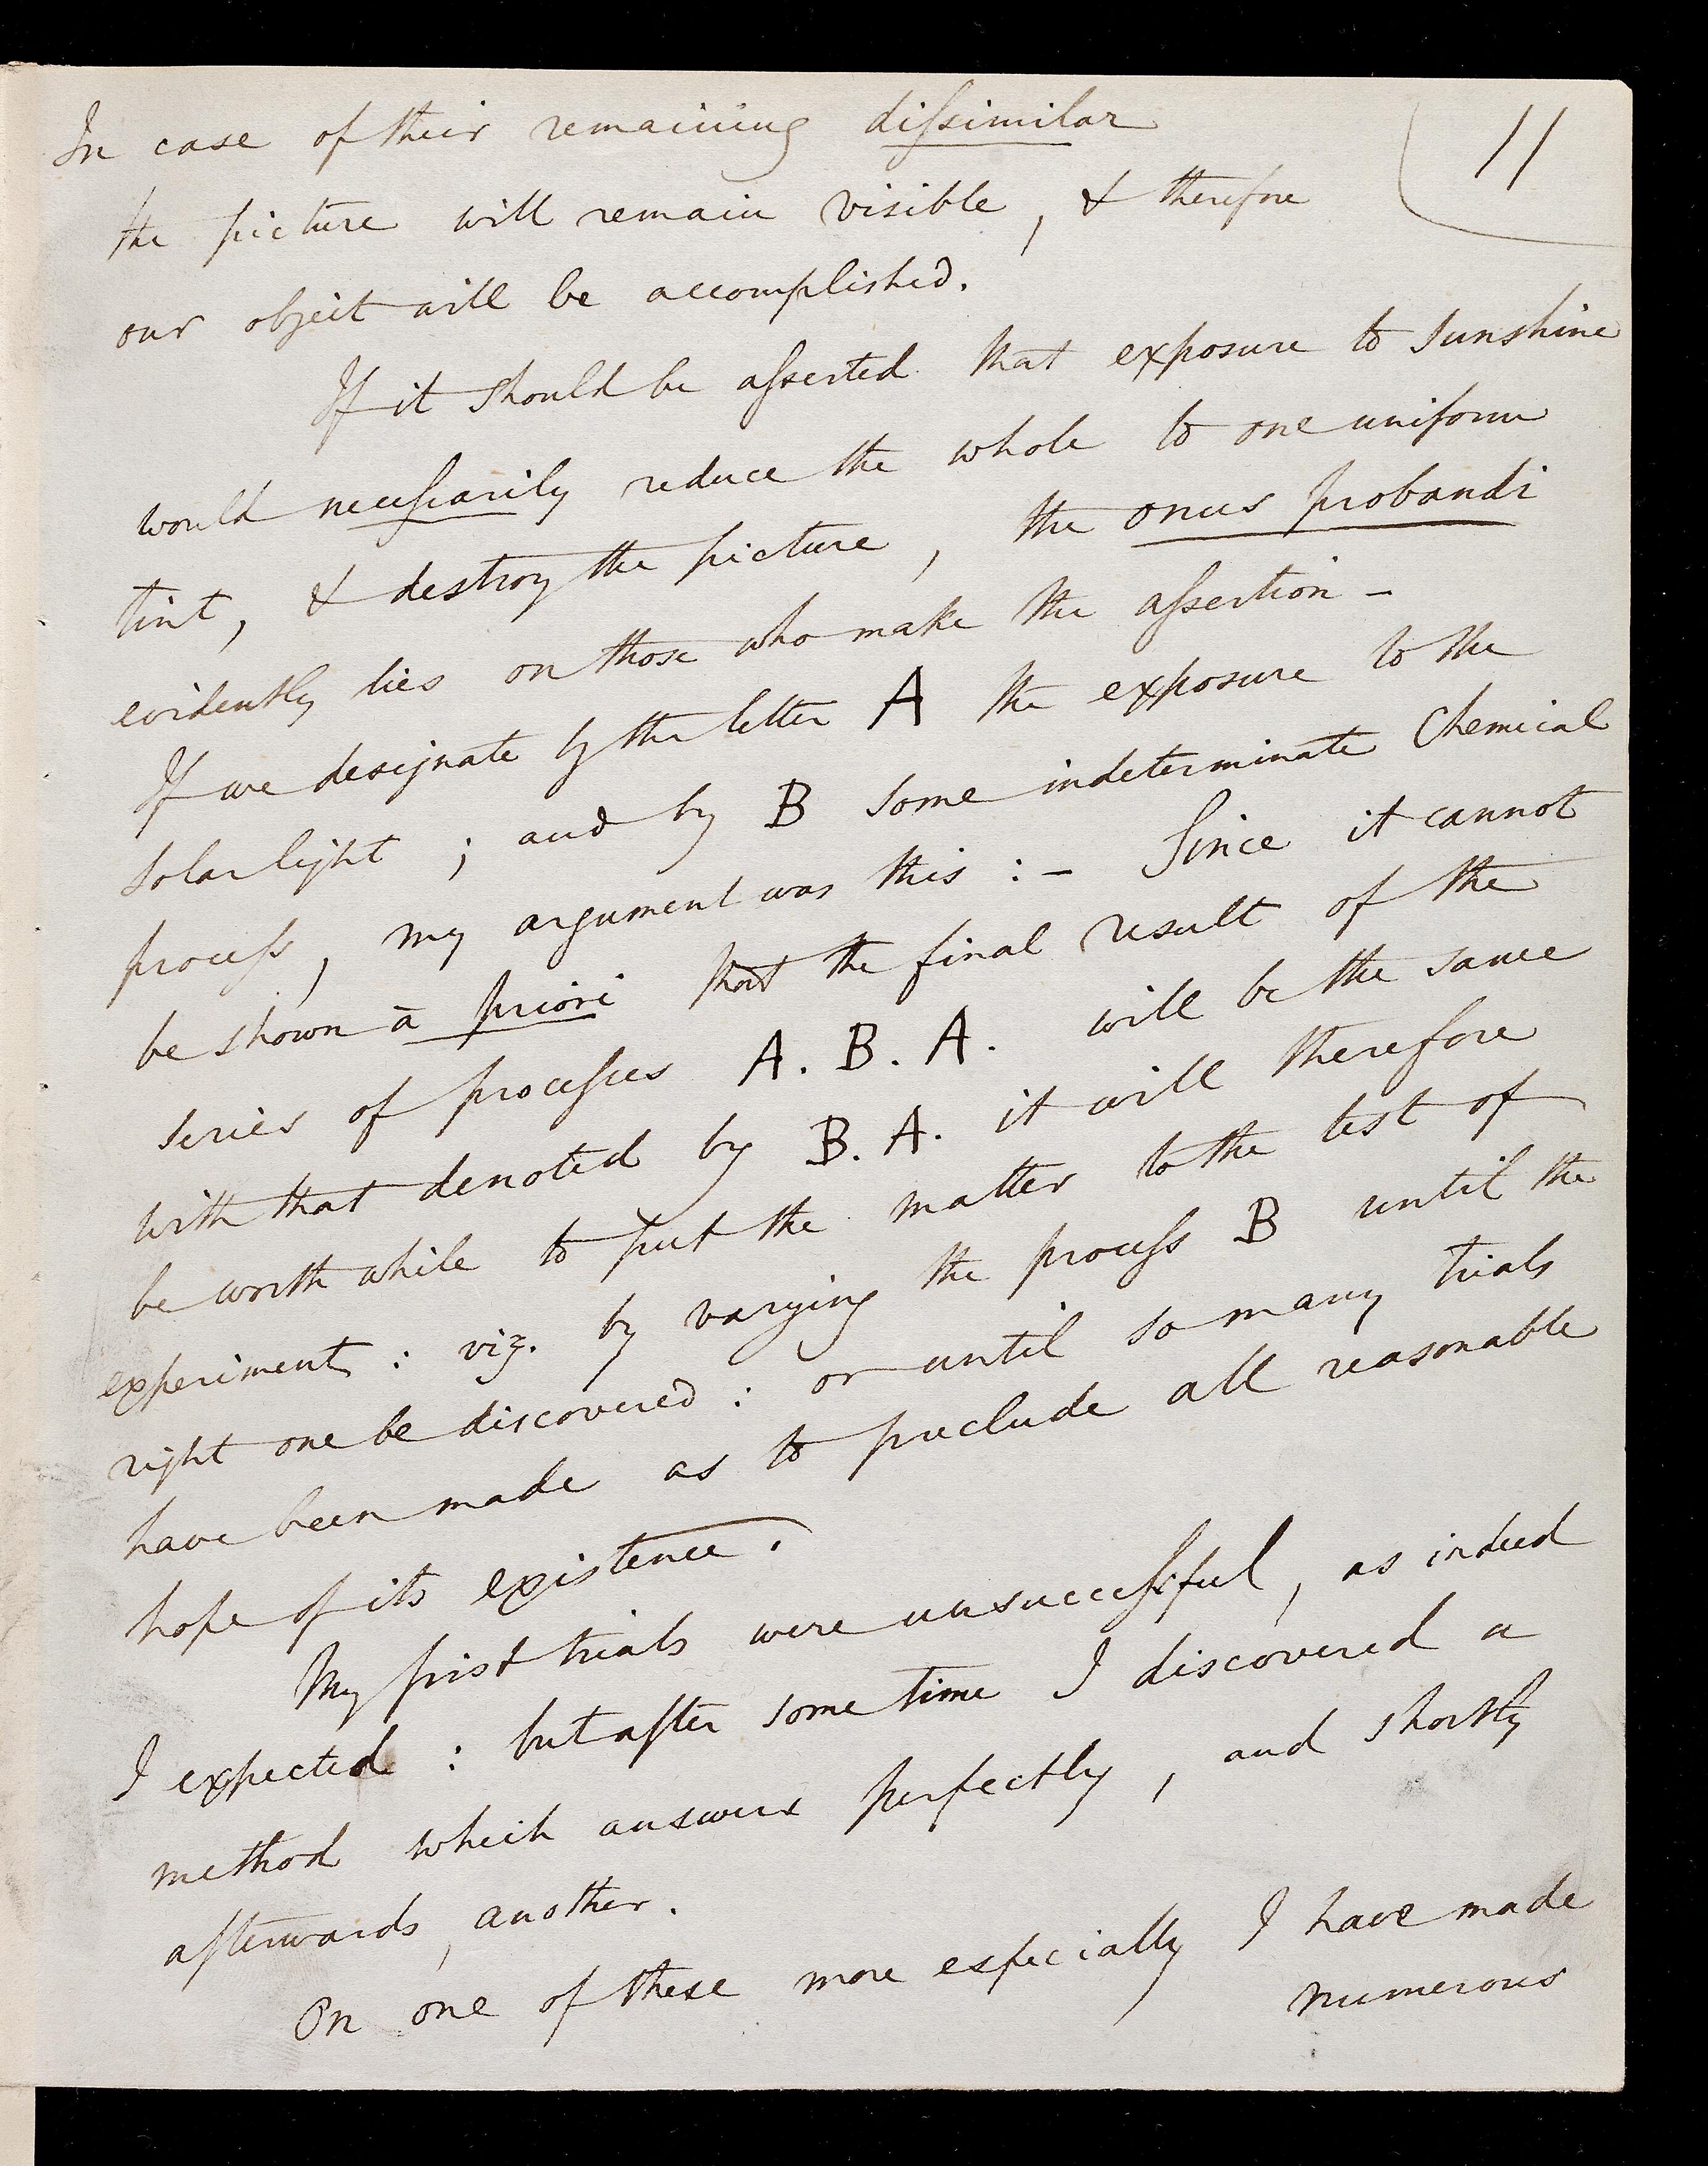 11
In case of their remaining diſsimilar
the picture will remain visible, & therefore
our object will be accomplished.
If it should be aſserted that exposure to sunshine
would neceſsarily reduce the whole to one uniform
tint, & destroy the picture, the onus probandi
evidently lies on those who make the aſsertion –
If we designate by the letter A the exposure to the
solar light; and by B some indeterminate Chemical
proceſs, my argument was this :– Since it cannot
be shown à priori that the final result of the
series of proceſses A. B. A. will be the same
with that denoted by B. A. it will therefore
be worth while to put the matter to the test of
experiment: viz. by varying the proceſs B until the
right one be discovered: or until so many trials
have been made as to preclude all reasonable
hope of its existence.
My first trials were unsucceſsful, as indeed
I expected: but after some time I discovered a
method which answers perfectly, and shortly
afterwards, another.
On one of these more especially I have made
numerous